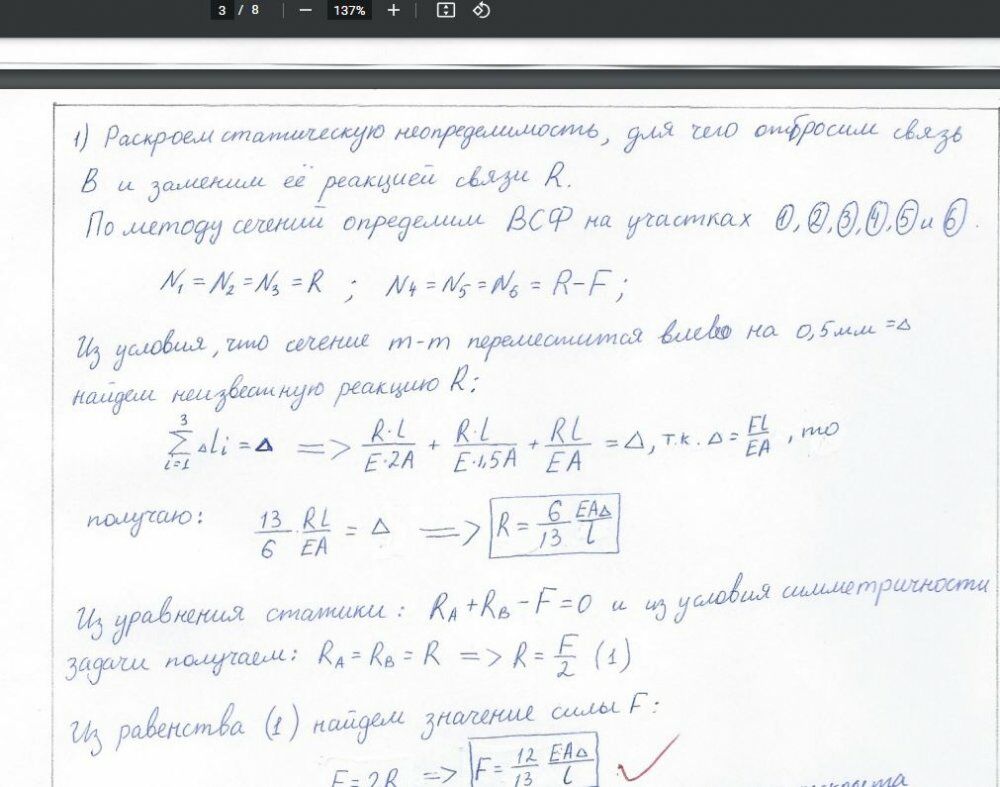 3 / 8 | — 137% + |
1) Раскроем статическую неопределимость, для чего отбросим связь
В и заменим её реакцией связи R.
По методу сечений определим ВСФ на участках ①, ②, ③, ④, ⑤ и ⑥.
N₁ = N₂ = N₃ = R ; N₄ = N₅ = N₆ = R–F ;
Из условия, что сечение m-m переместится влево на 0,5мм = Δ
найдем неизвестную реакцию R:
3 ∑ i=1 Δli = Δ => R·L / E·2A + R·L / E·1,5A + RL / EA = Δ, т.к. Δ = FL / EA , то
получаю: 13/6 · RL / EA = Δ => R = 6/13 EAΔ / l
Из уравнения статики: R_A + R_B – F = 0 и из условия симметричности
задачи получаем: R_A = R_B = R => R = F/2 (1)
Из равенства (1) найдем значение силы F:
F = 2R => F = 12/13 EAΔ / l